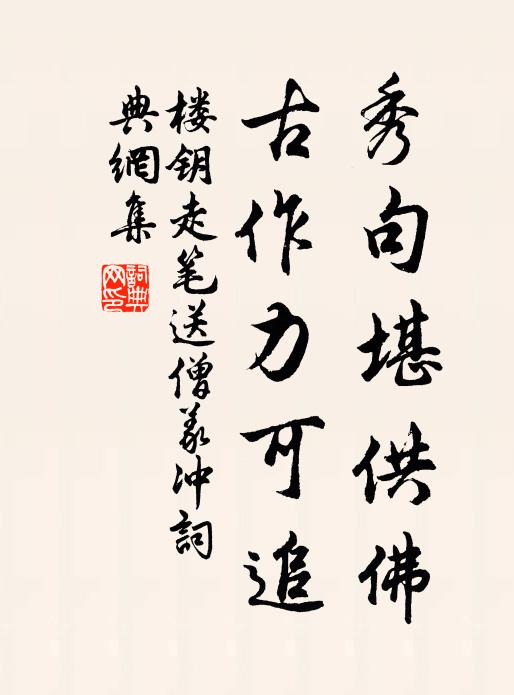 秀句堪供佛
古作力可追
楼钥走笔送僧义冲詞
典網集
詞典网印